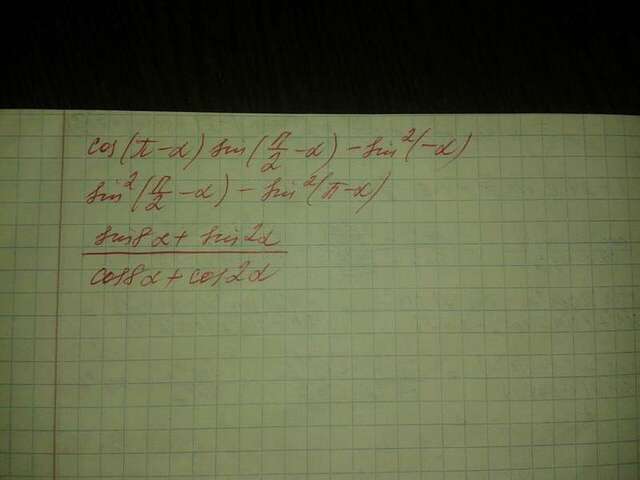 cos(π-α) sin(π/2-α) - sin²(-α)
sin²(π/2-α) - sin²(π-α)
sin8α + sin2α
cos8α + cos2α